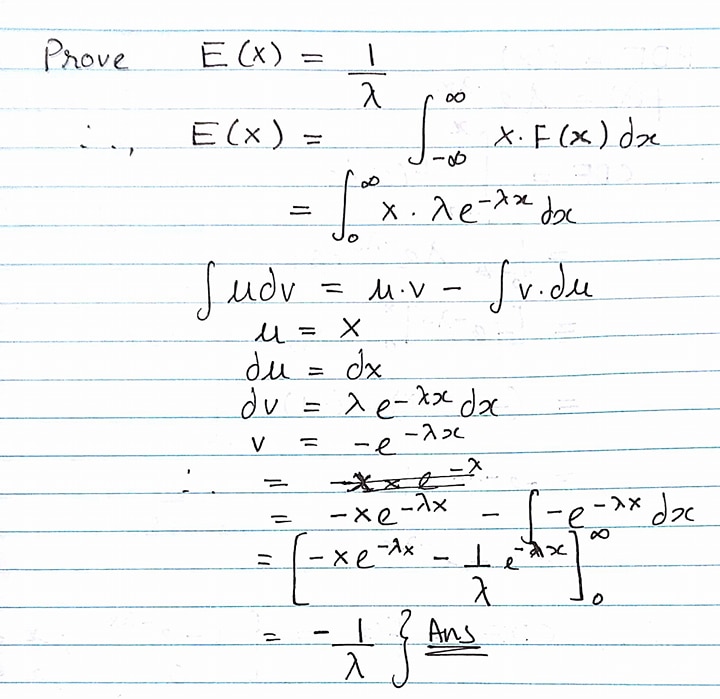 Prove E(x) = 1/λ
∴, E(x) = ∫_{-∞}^{∞} x·F(x)dx
= ∫_0^∞ x·λe^{-λx}dx
∫udv = u·v - ∫v·du
u = x
du = dx
dv = λe^{-λx}dx
v = -e^{-λx}
∴ = -xe^{-λx} - ∫-e^{-λx}dx
= [-xe^{-λx} - 1/λ e^{-λx}]_0^∞
= -1/λ } Ans